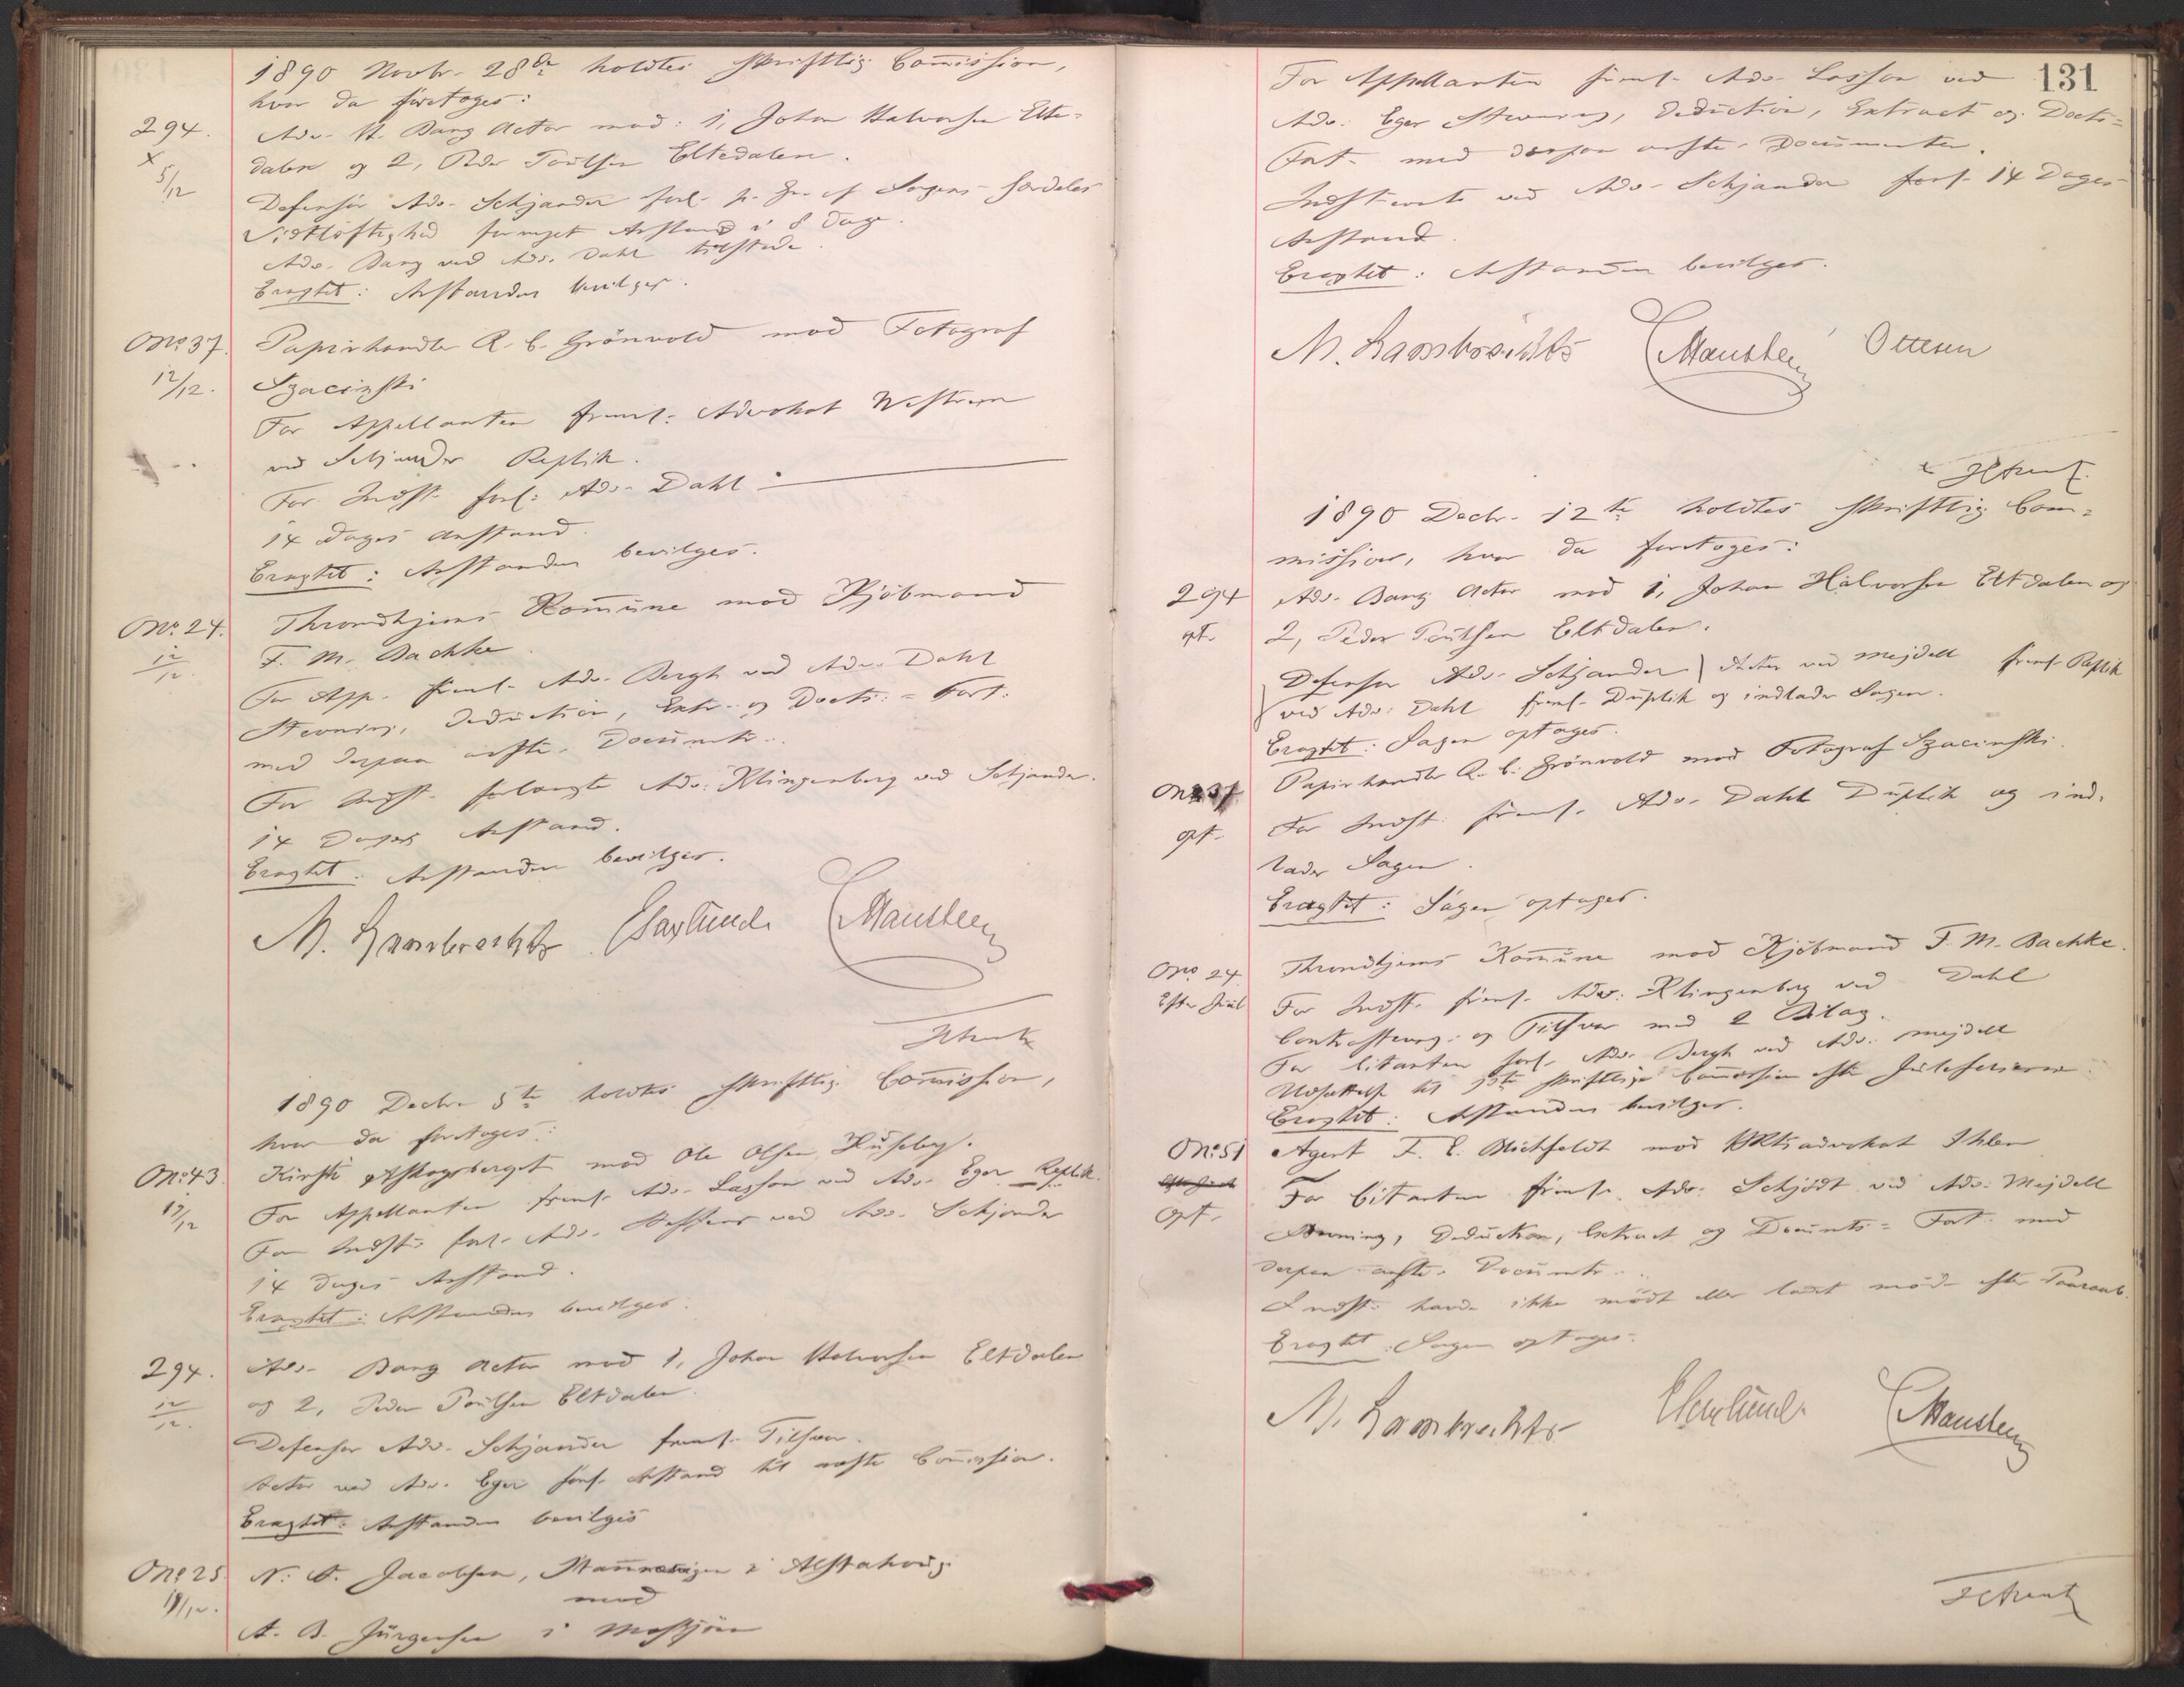 1890 Novbr. 28de holdtes skriftlig Commission,
hvor da foretoges:
294. Adv. H. Bang Actor mod: 1, Johan Halvorsen Elte-
x dalen og 2, Peder Poulsen Eltedalen.
5/12 Defensor Adv. Schjander forl. p. Gr. af Sagens særdeles
Vidtløftighed fornyet Anstand i 8 Dage.
Adv. Bang ved Adv. Dahl tilstede.
Eragtet: Anstanden bevilges.
No. 37. Papirhandler R. C. Grönvold mod Fotograf
12/12. Szacinski
For Appellanten freml. Advokat Westrum
ved Schjander Replik.
For Indst. forl: Adv. Dahl
14 Dages Anstand.
Eragtet: Anstanden bevilges.
No. 24. Throndhjems Kommune mod Kjöbmand
12/12. F. M. Bachke.
For App. freml. Adv. Bergh ved Adv. Dahl
Stevning, Deduction, Extr. og Docts. = Fort.
med derpaa anförte Documenter.
For Indst. forlangte Adv. Klingenberg ved Schjander.
14 Dages Anstand.
Eragtet: Anstanden bevilges.
M. Lambrechts Claus Hansteen
1890 Decbr. 5te holdtes skriftlig Commission,
hvor da foretoges:
No. 43. Kirsti Askogsberget mod Ole Olsen Huseby.
19/12 For Appellanten freml. Adv. Lasson ved Adv. Eger Replik.
For Indst. forl. Adv. ved Adv. Schjander
14 Dages Anstand.
Eragtet: Anstanden bevilges.
294. Adv. Bang Actor mod 1, Johan Halvorsen Eltdalen
12/12. og 2, Peder Poulsen Eltdalen.
Defensor Adv. Schjander freml. Tilsvar.
Actor ved Adv. Eger forl. Anstand til næste Commission.
Eragtet: Anstanden bevilges
No. 25. N. A. Jacobsen, i Alstahoug
19/12. mod
A. B. Jürgensen i Mosjöen
131
For Appellanten freml. Adv. Lasson ved
Adv. Eger Stevning, Deduction, Extract og Docts =
Fort. med derpaa anförte Documenter.
Indstevnte ved Adv. Schjander forl. 14 Dages
Anstand.
Eragtet: Anstanden bevilges.
M. Lambrechts Hansteen Ottesen
1890 Decbr. 12te holdtes skriftlig Com =
mission, hvor da foretoges:
294 Adv. Bang Actor mod 1, Johan Halvorsen Eltdalen og
opt. 2, Peder Poulsen Eltdalen.
Defensor Adv. Schjander Actor ved Mejdell freml. Replik
ved Adv. Dahl freml. Duplik og indlader Sagen.
Eragtet: Sagen optages.
No 37 Papirhandler R. C. Grönvold mod Fotograf Szacinski.
opt. For Indst. freml. Adv. Dahl Duplik og ind-
lader Sagen.
Eragtet: Sagen optages.
No. 24 Throndhjems Kommune mod Kjöbmand F. M. Bachke.
Efter Juul For Indst. freml. Adv. Klingenberg ved Dahl
Contrastevng. og Tilsvar med 2 Bilag.
For Citanten forl. Adv. Bergh ved Adv. Mejdell
Udsættelse til 1ste skriftlige Commission efter Juleferierne.
Eragtet: Anstanden bevilges.
No. 51 Agent F. E. Blichfeldt mod HRtsadvokat Ihlen
Efter Juul For Citanten freml. Adv. Schjödt ved Adv. Mejdell
opt. Stevning, Deduction, Extract og Documts = Fort. med
derpaa anförte Documenter.
Indst. havde ikke mödt eller ladet möde efter Paaraab.
Eragtet: Sagen optages.
M. Lambrechts Hansteen